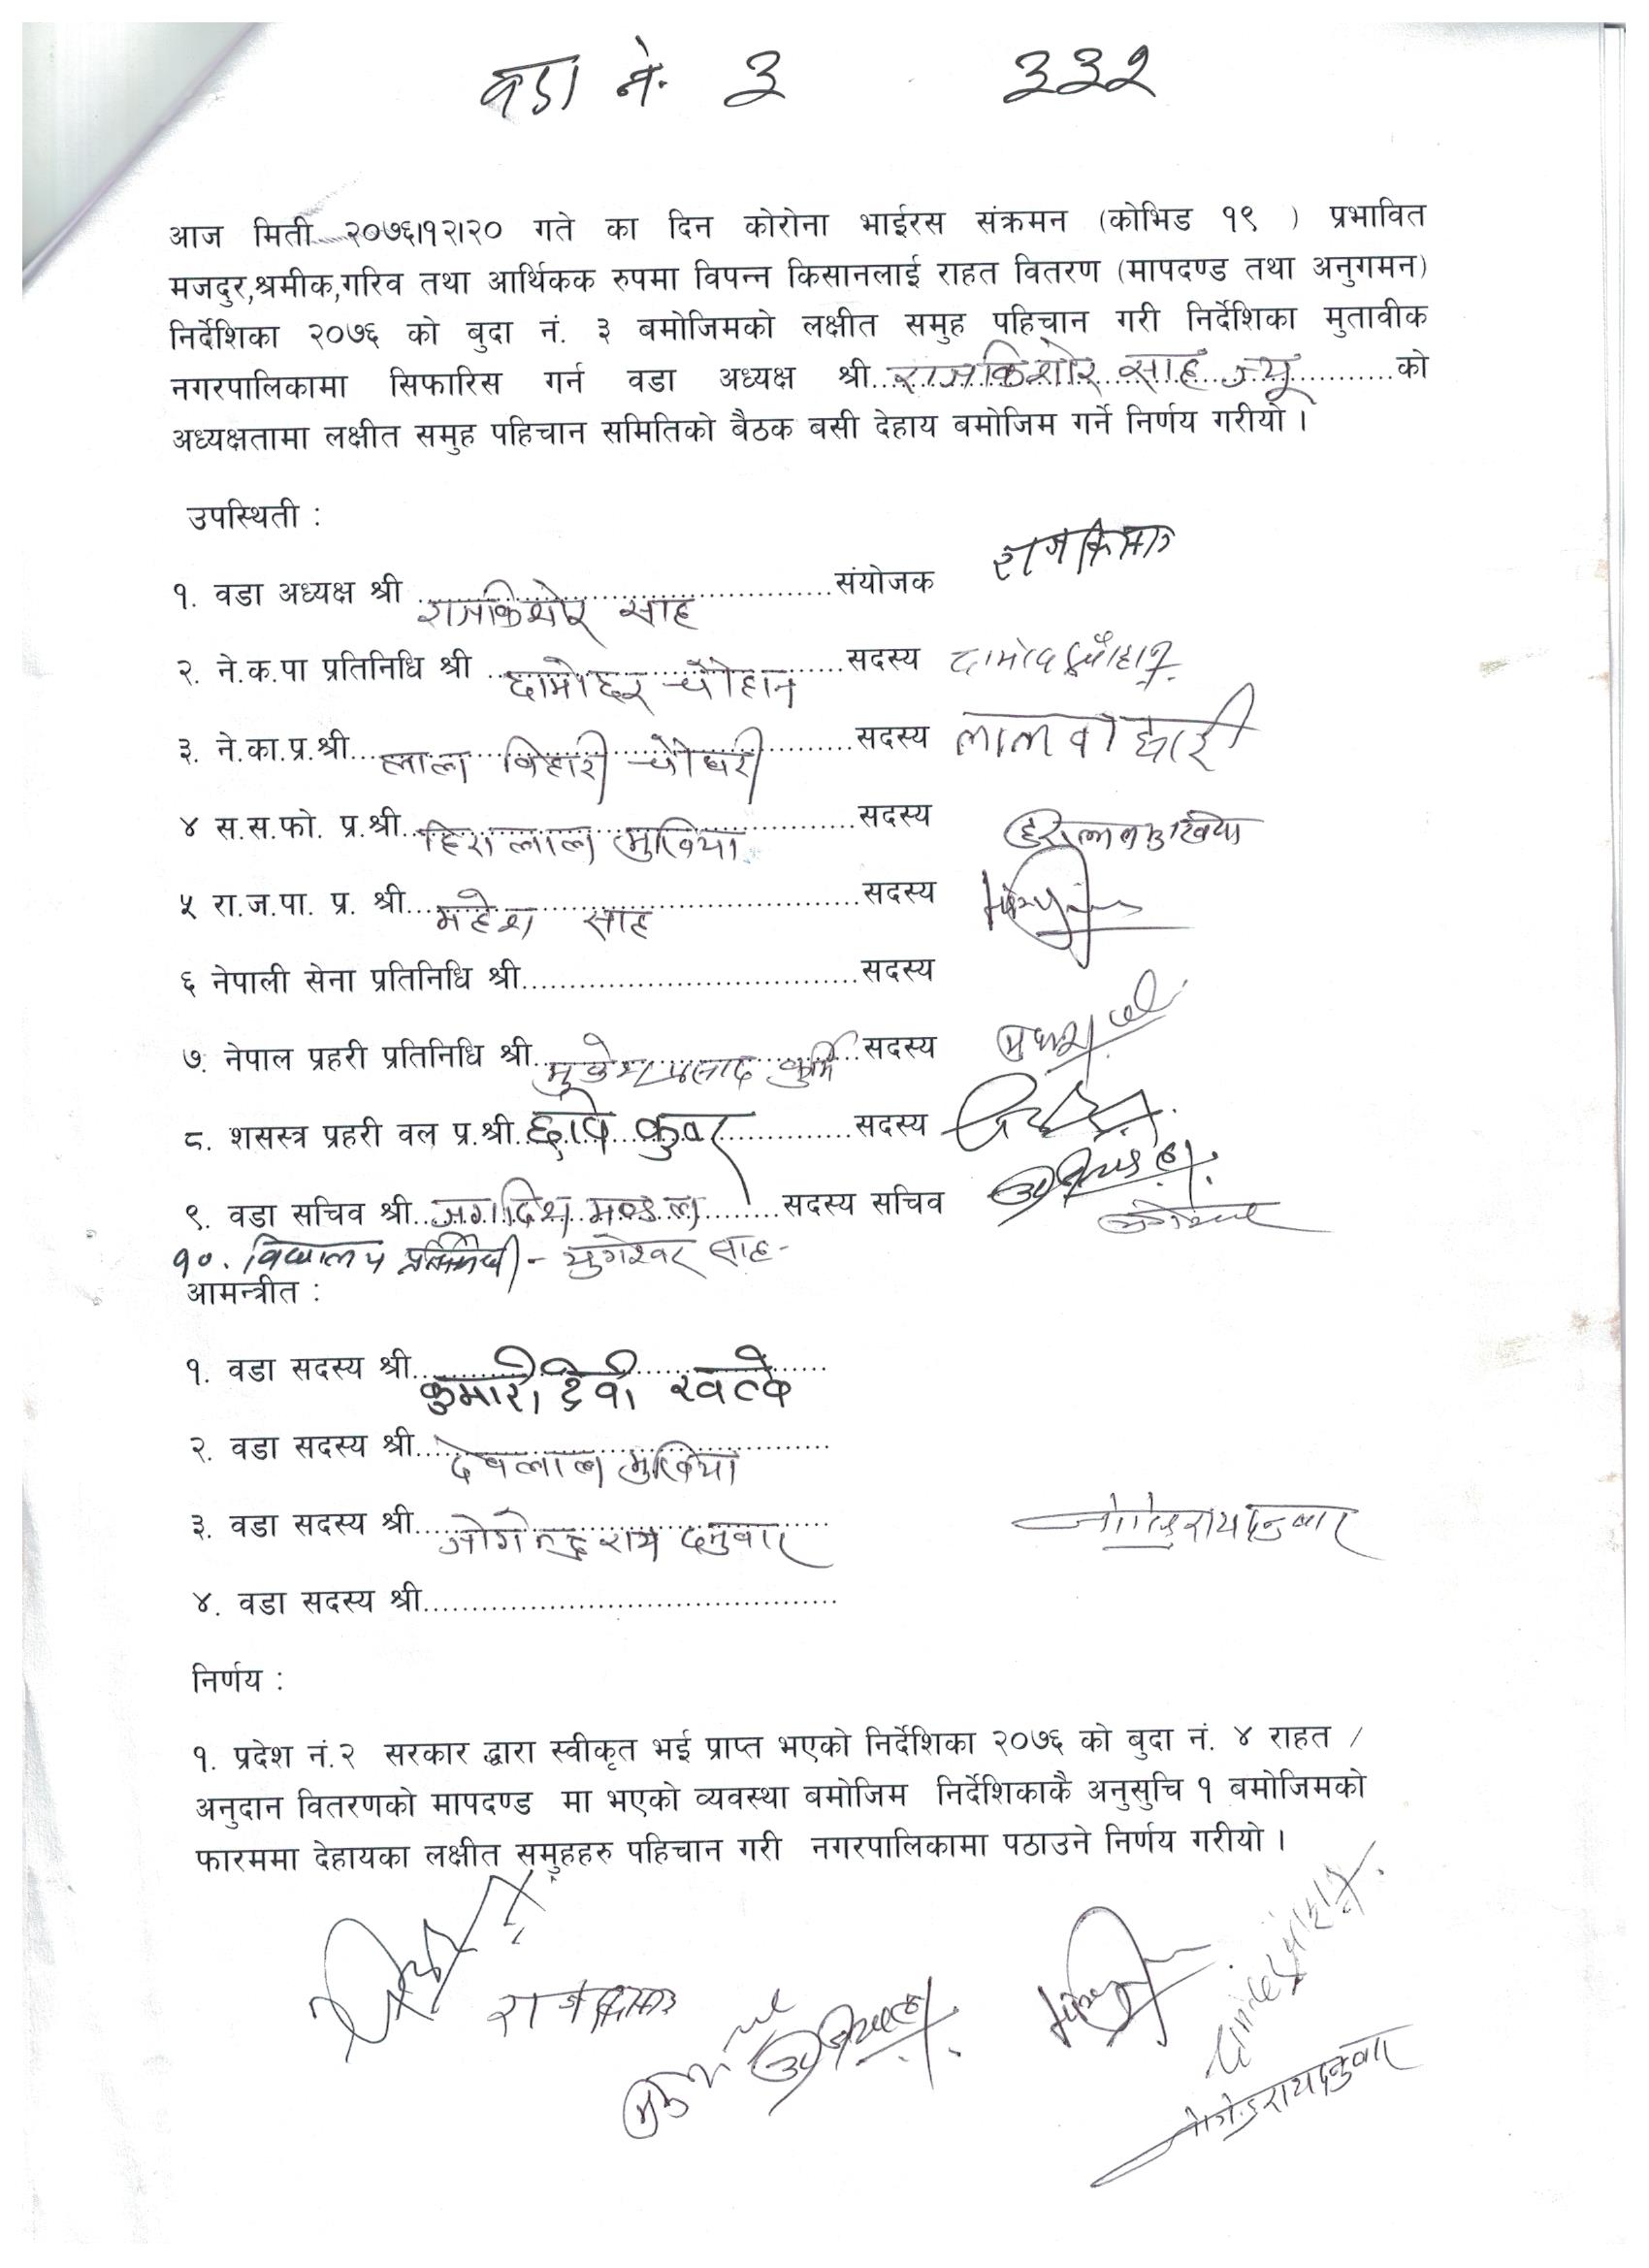 वडा नं. ३ ३३२
आज मिती २०७६।१२।२० गते का दिन कोरोना भाईरस संक्रमन (कोभिड १९ ) प्रभावित
मजदुर,श्रमीक,गरिव तथा आर्थिकक रुपमा विपन्न किसानलाई राहत वितरण (मापदण्ड तथा अनुगमन)
निर्देशिका २०७६ को बुदा नं. ३ बमोजिमको लक्षीत समुह पहिचान गरी निर्देशिका मुतावीक
नगरपालिकामा सिफारिस गर्न वडा अध्यक्ष श्री..राजकिशोर साह ज्यू............को
अध्यक्षतामा लक्षीत समुह पहिचान समितिको बैठक बसी देहाय बमोजिम गर्ने निर्णय गरीयो ।
उपस्थिती :
१. वडा अध्यक्ष श्री राजकिशोर साह संयोजक
२. ने.क.पा प्रतिनिधि श्री दामोदर चौहान सदस्य दामोदर चौहान
३. ने.का.प्र.श्री लाल विहारी चौधरी सदस्य
४ स.स.फो. प्र.श्री हिरालाल मुखिया सदस्य हिरालाल मुखिया
५ रा.ज.पा. प्र. श्री महेश साह सदस्य
६ नेपाली सेना प्रतिनिधि श्री सदस्य
७. नेपाल प्रहरी प्रतिनिधि श्री मुकेश प्रसाद कुर्मि सदस्य
८. शसस्त्र प्रहरी वल प्र.श्री कुवर सदस्य
९. वडा सचिव श्री जगदिश मण्डल सदस्य सचिव
१०. विद्यालय प्रतिनिधी - युगेश्वर साह-
आमन्त्रीत :
१. वडा सदस्य श्री कुमारी देवी खत्वे
२. वडा सदस्य श्री देवलाल मुखिया
३. वडा सदस्य श्री जोगेन्द्र राय दनुवार जोगेन्द्र राय दनुवार
४. वडा सदस्य श्री
निर्णय :
१. प्रदेश नं.२ सरकार द्वारा स्वीकृत भई प्राप्त भएको निर्देशिका २०७६ को बुदा नं. ४ राहत /
अनुदान वितरणको मापदण्ड मा भएको व्यवस्था बमोजिम निर्देशिकाकै अनुसुचि १ बमोजिमको
फारममा देहायका लक्षीत समुहहरु पहिचान गरी नगरपालिकामा पठाउने निर्णय गरीयो ।
जोगेन्द्र राय दनुवार